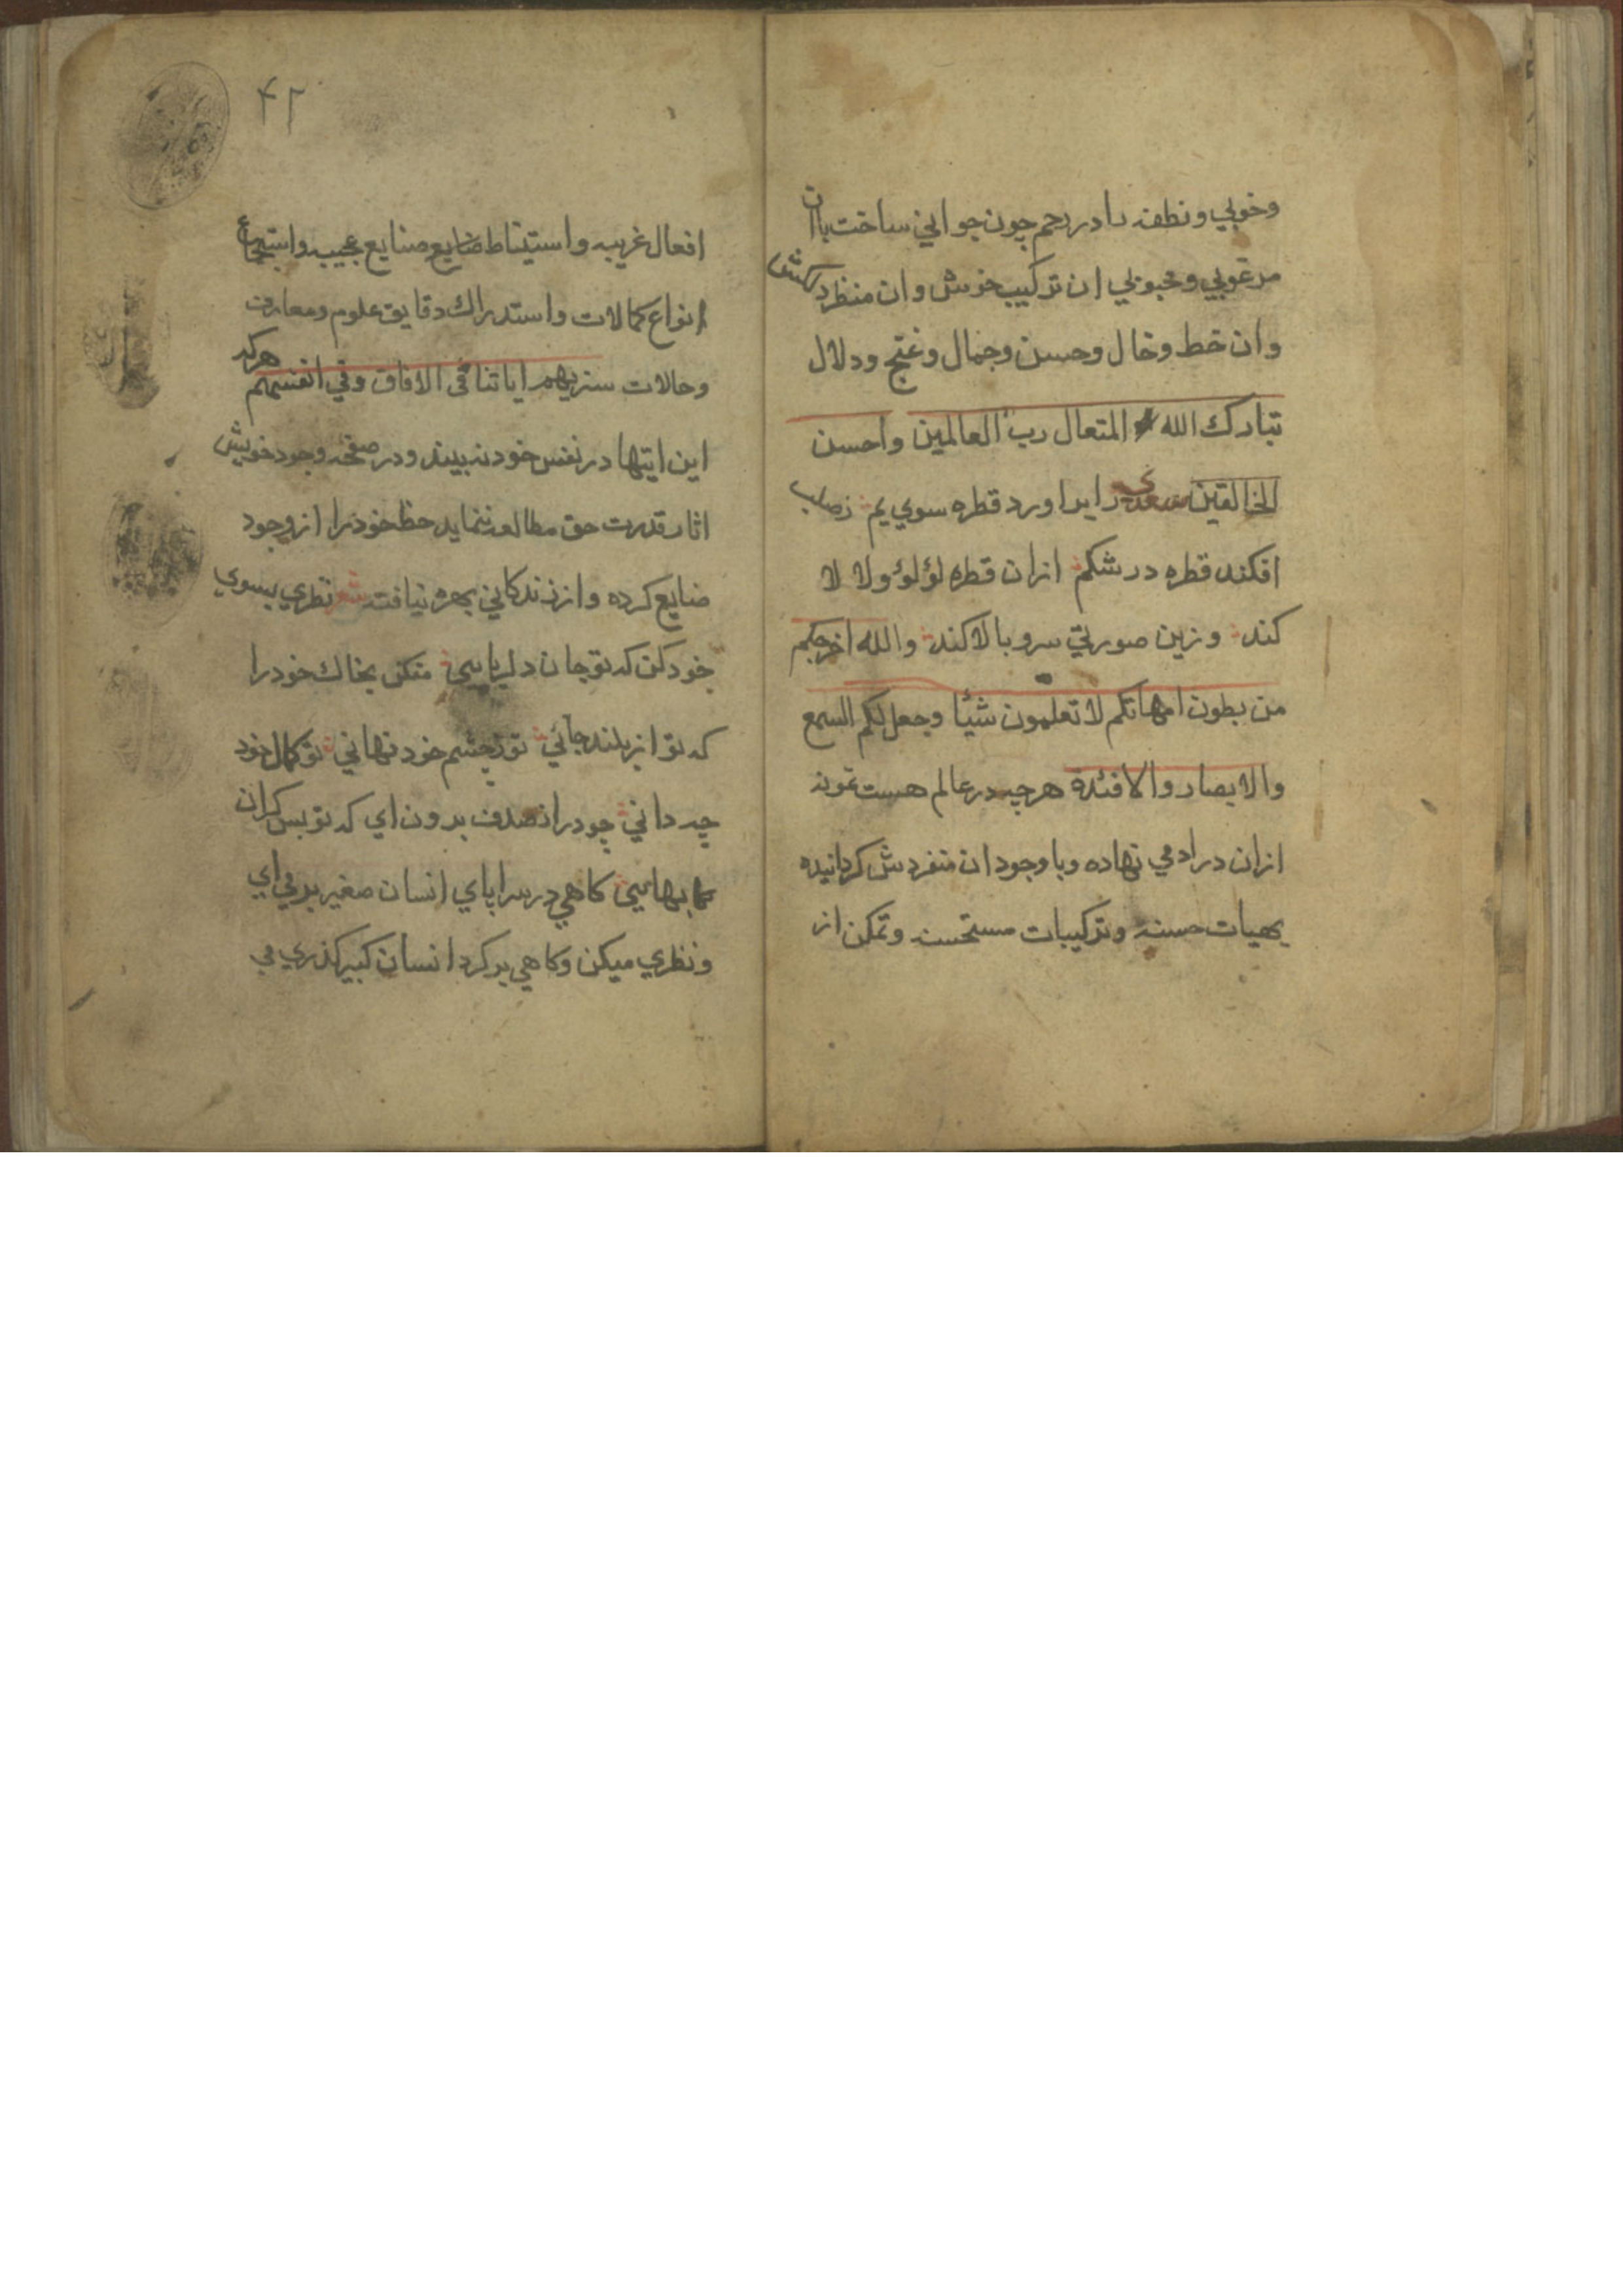 وخوبي ونطفه را در رحم چون جواني ساخت با ان
مرغوبي ومحبوبي ان تركيب خوش وان منظر دلكش
وان خط وخال وحسن وجمال وغنج ودلال
تبارك الله المتعال رب العالمين واحسن
الخالقين سعدي زابر اورد قطره سوي يم زصلب
افكند قطره در شكم ازان قطره لؤلؤ ولا لا
كند وزين صورتي سرو بالا كند والله اخرجكم
من بطون امهاتكم لا تعلمون شيئا وجعل لكم السمع
والابصار والافئدة هر چه در عالم هست نمونه
ازان در ادمي نهاده وبا وجود ان متفردش كردانيده
بهيات حسنه وتركيبات مستحسنه وتمكن از
۴۲
افعال غريبه واستنباط ضايع صنايع عجيبه واستجماع
انواع كمالات واستدراك دقايق علوم ومعارف
وحالات سنريهم اياتنا في الافاق وفي انفسهم هركه
اين ايتها در نفس خود نه بيند ودر صفحه وجود خويش
اثار قدرت حق مطالعه ننمايد حظ خود را از وجود
ضايع كرده واز زندكاني بهره نيافته شعر نظري بسوي
خود كن كه تو جان دلربايي مفكن بخاك خود را
كه تو از بلند جائي تو زچشم خود نهاني تو كمال خود
چه داني چو در از صدف برون اي كه تو بس كران
بهايي كاهي در سراپاي انسان صغير بر مي اي
ونظري ميكن وكاهي بر كرد انسان كبير كذري مي